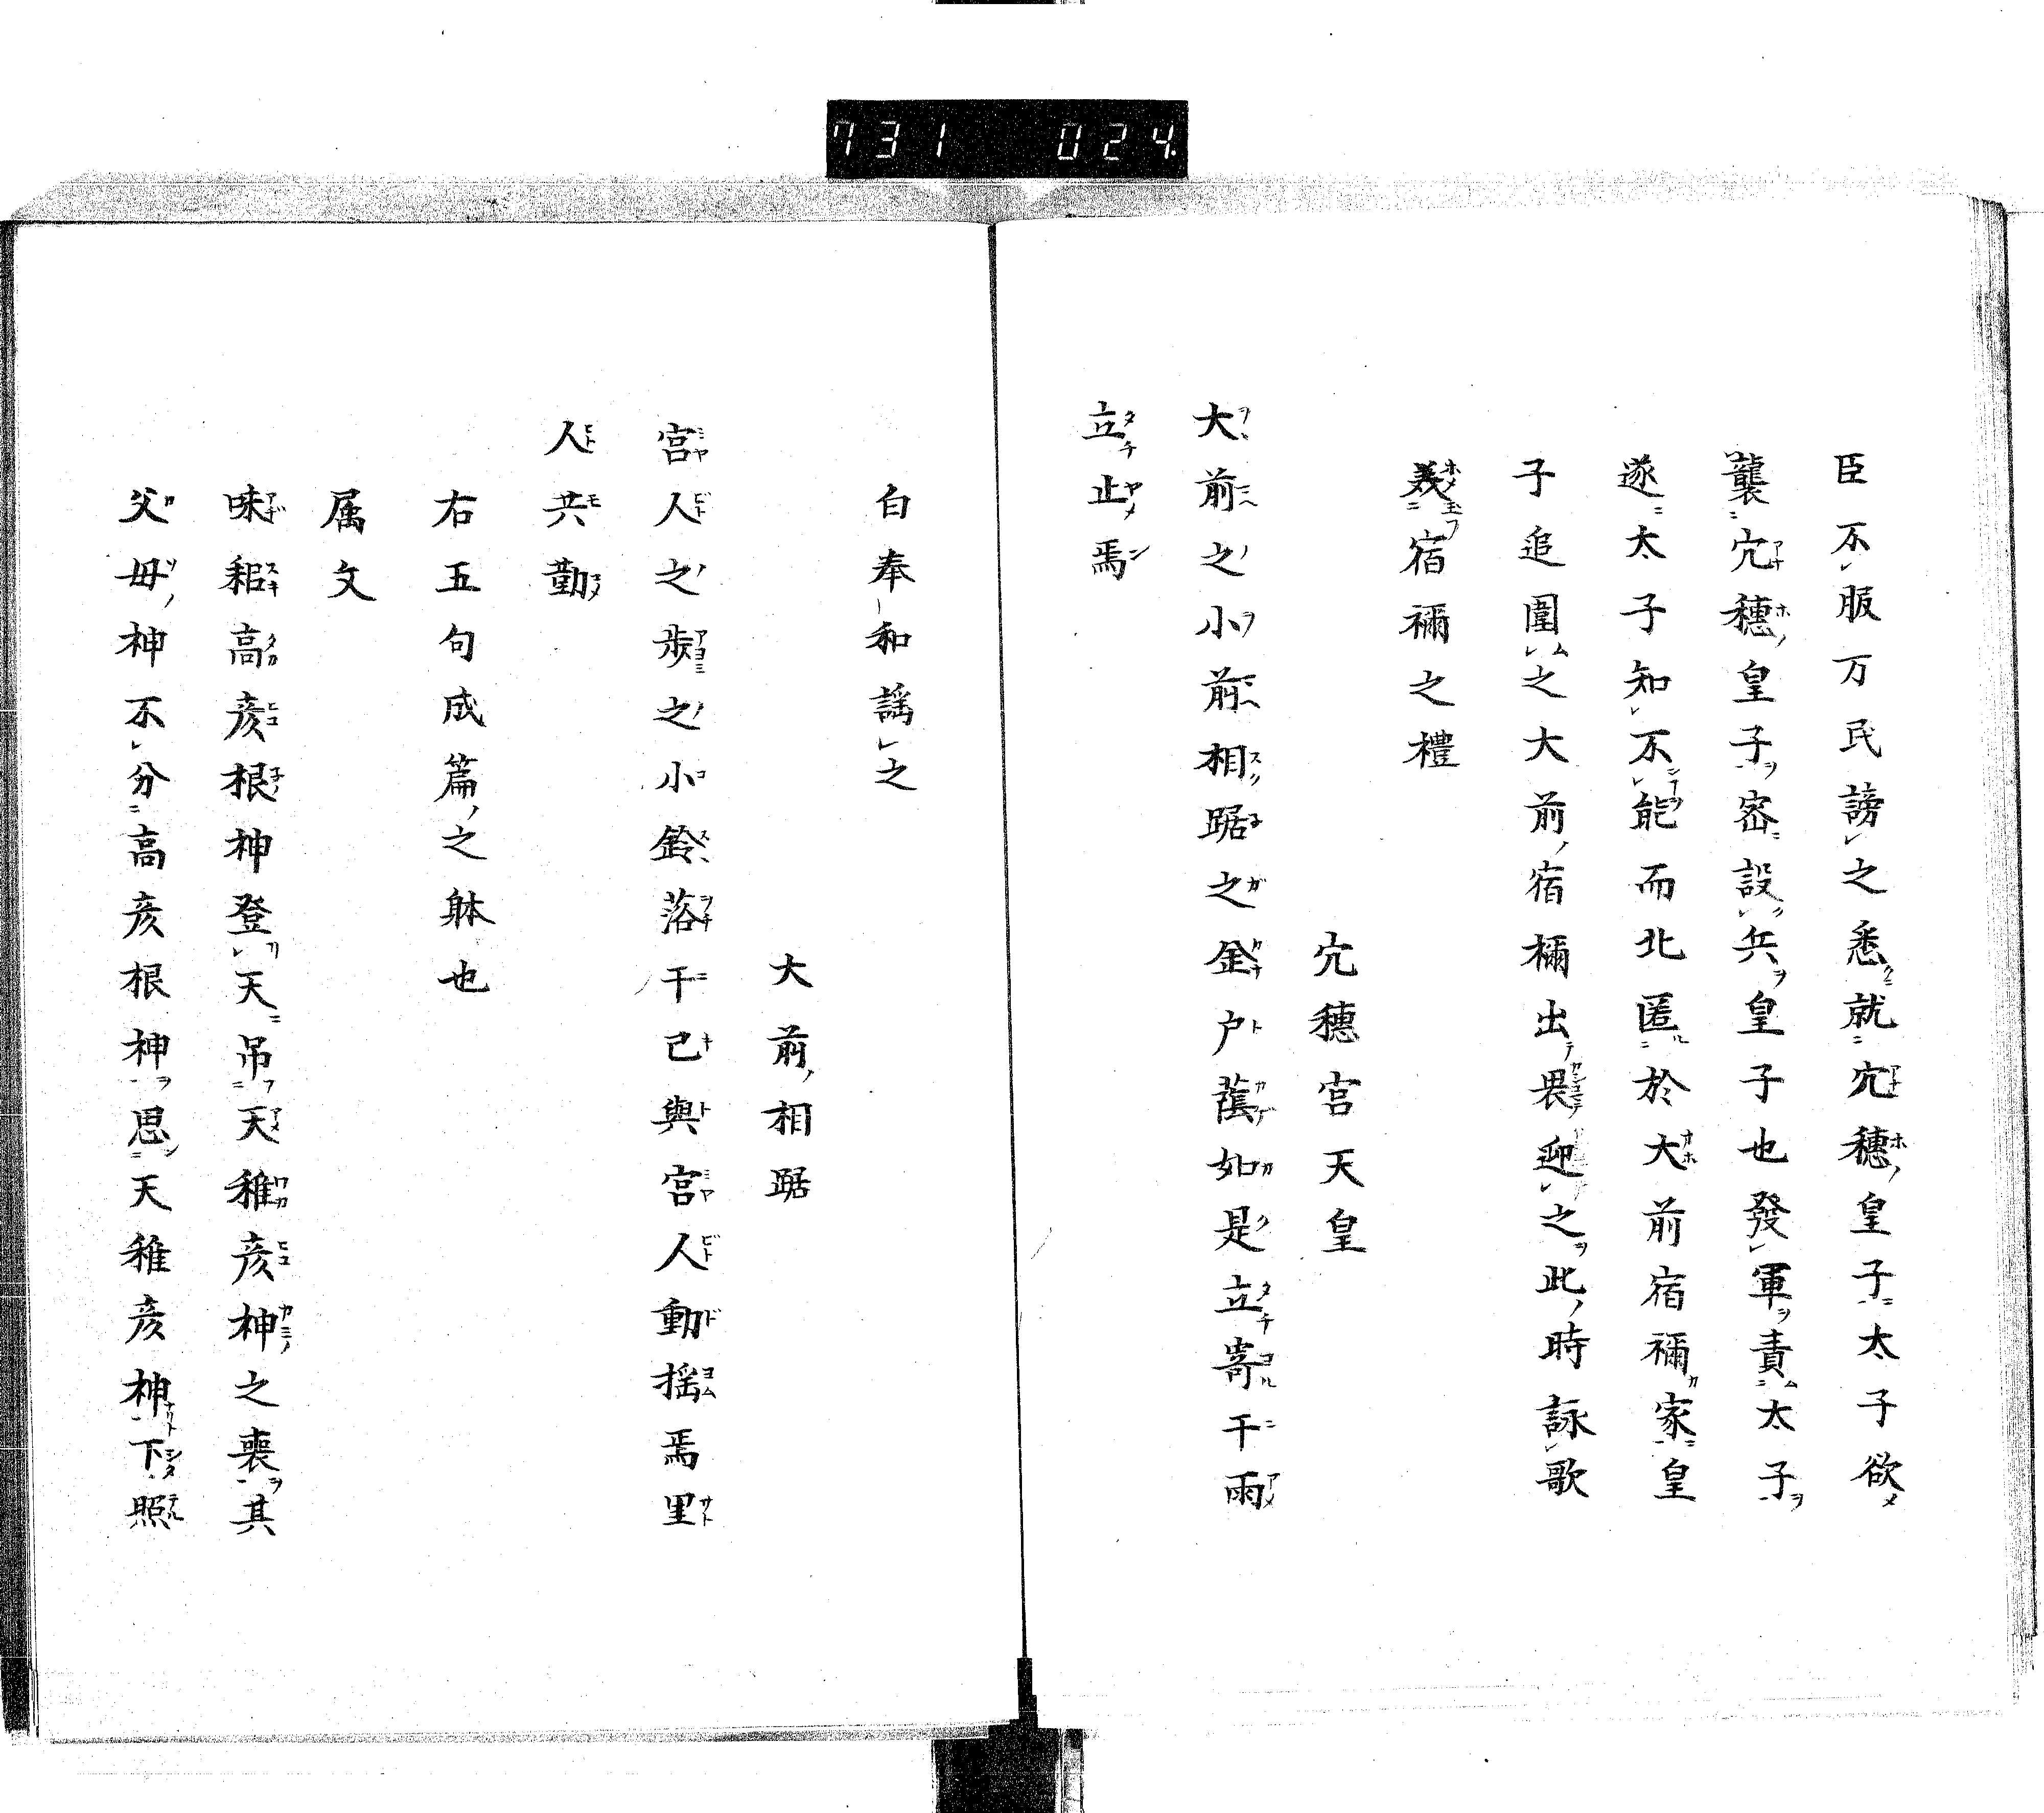 731 024
臣不服万民謗之悉就宂穗皇子太子欲
襲宂穗皇子密設兵皇子也發軍責太子
遂太子知不能而北匿於大前宿禰家皇
子追圍之大前宿禰出畏迎之此時詠歌
義宿禰之禮
宂穗宮天皇
大前之小前相踞之金户蔭如是立寄干雨
立止焉
白奉和謡之
大前相踞
宮人之歩之小鈴落干已與宮人動揺焉里
人共勤
右五句成篇之躰也
属文
味耜高彦根神登天吊天稚彦神之喪其
父母神不分高彦根神思天稚彦神下照